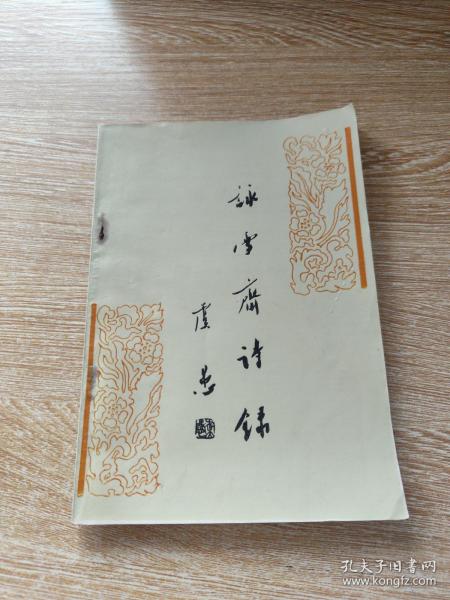 詠雪齋诗録
虞愚
孔夫子旧书网
www.kongfz.com